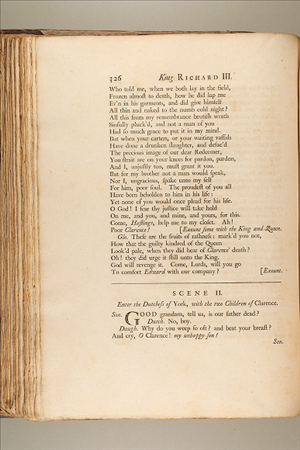 326 King RICHARD III.
Who told me, when we both lay in the field,
Frozen almoſt to death, how he did lap me
Ev'n in his garments, and did give himſelf
All thin and naked to the numb cold night?
All this from my remembrance brutiſh wrath
Sinfully pluck'd, and not a man of you
Had ſo much grace to put it in my mind.
But when your carters, or your waiting vaſſals
Have done a drunken ſlaughter, and defac'd
The precious image of our dear Redeemer,
You ſtrait are on your knees for pardon, pardon,
And I, unjuſtly too, muſt grant it you.
But for my brother not a man would ſpeak,
Nor I, ungracious, ſpake unto my ſelf
For him, poor ſoul. The proudeſt of you all
Have been beholden to him in his life:
Yet none of you would once plead for his life.
O God! I fear thy juſtice will take hold
On me, and you, and mine, and yours, for this.
Come, Haſtings, help me to my cloſet. Ah!
Poor Clarence! [Exeunt ſome with the King and Queen.
Glo. Theſe are the fruits of raſhneſs: mark'd you not,
How that the guilty kindred of the Queen
Look'd pale, when they did hear of Clarence' death?
Oh! they did urge it ſtill unto the King.
God will revenge it. Come, Lords, will you go
To comfort Edward with our company? [Exeunt.
SCENE II.
Enter the Dutcheſs of York, with the two Children of Clarence.
Son. GOOD grandam, tell us, is our father dead?
Dutch. No, boy.
Daugh. Why do you weep ſo oft? and beat your breaſt?
And cry, O Clarence! my unhappy ſon!
Son.